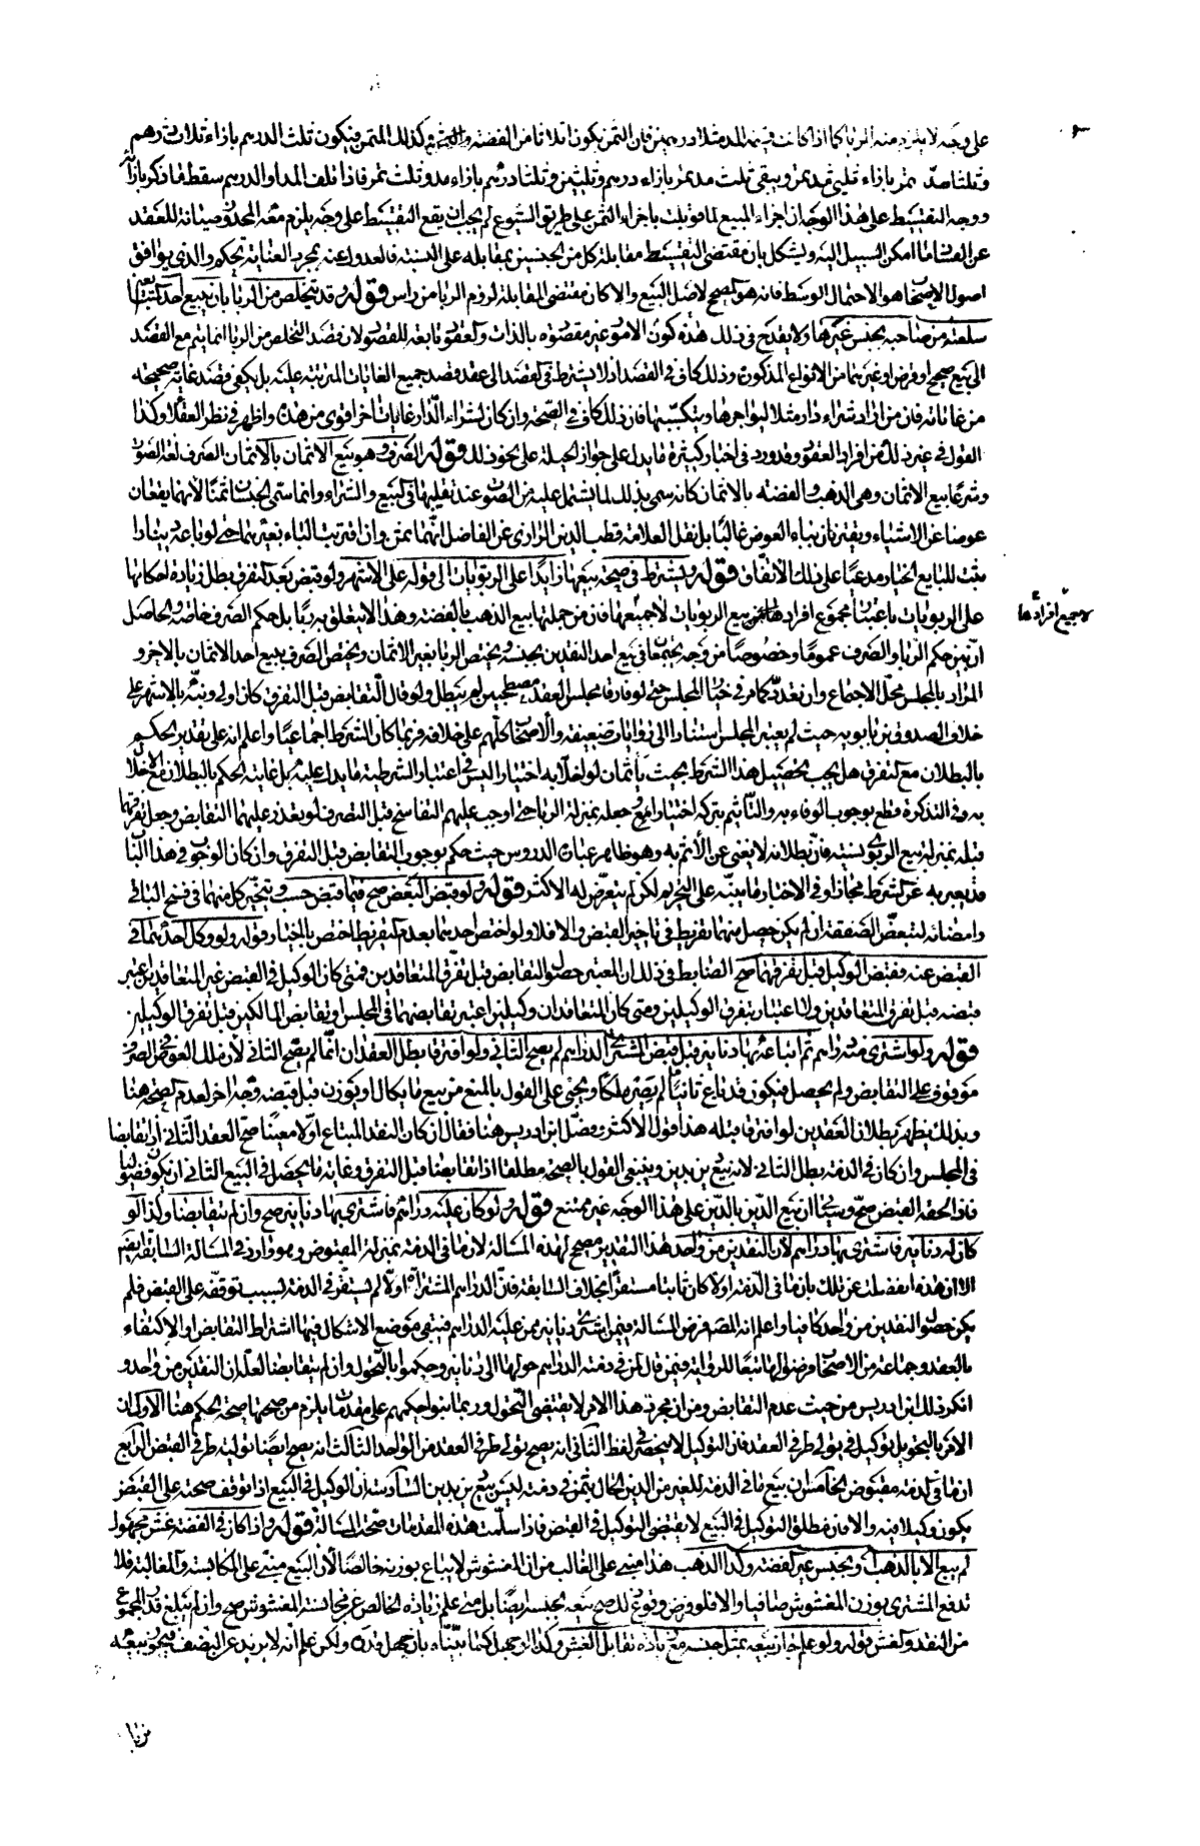 على وجه لا يلزم منه الربا كما اذا كانت قيمة المد مثلا درهمين فان الثمن يكون اثلاثا من الفضة والتمر وكذلك المثمن فيكون ثلث الدرهم بازاء ثلاث درهم
وثلثا مد تمر بازاء ثلثي مد تمر ويبقى ثلث مد تمر بازاء درهم وثلثين وثلثا درهم بازاء مد وثلث تمر فاذا تلف المد او الدرهم سقط ما ذكر بازائه
ووجه التقسيط على هذا الوجه ان اجزاء المبيع لما قوبلت باجزاء الثمن على طريق الشيوع لم يجب ان يقع التقسيط على وجه يلزم معه المحذور صيانة للعقد
عن الفساد ما امكن السبيل اليه ويشكل بان مقتضى التقسيط مقابلة كل من الجنسين بمقابله على النسبة فالعدول عنه بمجرد العناية تحكم والذي يوافق
اصول الاصحاب هو الاحتمال الوسط فانه هو المصحح لاصل البيع والا كان مقتضى المقابلة لزوم الربا من راس قوله وقد يتخلص من الربا بان يبيع احد المتبايعين
سلعته من صاحبه بجنس غيرها ولا يقدح في ذلك هذه كون الامور غير مقصودة بالذات والعقود تابعة للقصود لان قصد التخلص من الربا انما يتم مع القصد
الى بيع صحيح او قرض او غيرهما من الانواع المذكورة وذلك كاف في القصد اذ لا يشترط في القصد الى عقد قصد جميع الغايات المترتبة عليه بل يكفي قصد غاية صحيحة
من غاياته فان من اراد شراء دار مثلا ليؤاجرها ويتكسب بها فان ذلك كاف في الصحة وان كان لشراء الدار غايات اخر اقوى من هذه واظهر في نظر العقلاء وكذا
القول في غير ذلك من افراد العقود وقد ورد في اخبار كثيرة ما يدل على جواز الحيلة على نحو ذلك قوله الصرف وهو بيع الاثمان بالاثمان الصرف لغة الصوت
وشرعا بيع الاثمان وهي الذهب والفضة بالاثمان كانه سمي بذلك لما يشتمل عليه من الصوت عند تقليبها في البيع والشراء وانما سمي الجنسان ثمنا لانهما يقعان
عوضا عن الاشياء ويقترنان بباء العوض غالبا بل نقل العلامة قطب الدين الرازي عن الفاضل انهما ثمن وان اقترنت الباء بغيرهما حتى لو باعه دينارا
ثبت للبايع الخيار مدعيا على ذلك الاتفاق قوله ويشترط في صحة بيعها زايدا على الربويات الى قوله على الاشهر ولو قبض بعد التفرق بطل زيادة احكامها
على الربويات باعتبار مجموع افرادها فان بيع الربويات لا جميعها فان من جملتها بيع الذهب بالفضة وهذا لا يتعلق به ربا بل حكم الصرف خاصة والحاصل
لا جميع افرادها
ان بين حكم الربا والصرف عموما وخصوصا من وجه يجتمعا في بيع احد النقدين بجنسه ويختص الربا بغير الاثمان ويختص الصرف ببيع احد الاثمان بالاخر و
المراد بالمجلس محل الاجتماع وان تعدد كما مر في خيار المجلس حتى لو فارقا مجلس العقد مصطحبين لم يبطل ولو قال التقابض قبل التفرق كان اولى ونبه بالاشهر على
خلاف الصدوق بن بابويه حيث لم يعتبر المجلس استنادا الى روايات ضعيفة والاصحاب كلهم على خلافه فربما كان الشرط اجماعيا واعلم انه على تقدير الحكم
بالبطلان مع التفرق هل يجب تحصيل هذا الشرط بحيث يأثمان لو اخلا به اختيارا ليس في اعتبار الشرطية ما يدل عليه بل غايته الحكم بالبطلان مع الاخلال
به وفي التذكرة قطع بوجوب الوفاء به والتأثيم بتركه اختيارا مع جعله بمنزلة الربا حتى اوجب عليهم التفاسخ قبل التصرف لو تعذر عليهما التقابض وجعل تفرقهما
قبله بمنزلة بيع الربوي نسيئة فان بطلانه لا يغني عن الاثم به وهو ظاهر عبارة الدروس حيث حكم بوجوب التقابض قبل التفرق وان كان الوجوب في هذا الباب
قد يعبر به عن الشرط مجازا وفي الاخبار ما ينبه على التحريم لكن لم يتعرض له الاكثر قوله ولو قبض البعض صح فيما قبض حسب ويتخير كل منهما في فسخ الباقي
وامضائه لتبعض الصفقة ان لم يكن حصل منهما تفريط في تاخير القبض والا فلا ولو اختص احدهما بعدم التفريط اختص بالخيار قوله ولو وكل احدهما في
القبض عنه فقبض الوكيل قبل تفرقهما صح الضابط في ذلك ان المعتبر حصول التقابض قبل تفرق المتعاقدين فمتى كان الوكيل في القبض غير المتعاقدين اعتبر
قبضه قبل تفرق المتعاقدين ولا اعتبار بتفرق الوكيلين ومتى كان المتعاقدان وكيلين اعتبر تقابضهما في المجلس او تقابض المالكين قبل تفرق الوكيلين
قوله ولو اشترى منه دراهم ثم ابتاع بها دنانير قبل قبض المشتري الدراهم لم يصح الثاني ولو افترقا بطل العقدان انما لم يصح الثاني لان ملك العوض في الصرف
موقوف على التقابض ولم يحصل فيكون قد باع ثانيا ما لم يصر ملكا ويجئ على القول بالمنع من بيع ما يكال او يوزن قبل قبضه وجه اخر لعدم الصحة هنا
وبذلك يظهر بطلان العقدين لو افترقا قبله هذا قول الاكثر وفصل ابن ادريس هنا فقال ان كان النقد المبتاع اولا معينا صح العقد الثاني ان تقابضا
في المجلس وان كان في الذمة بطل الثاني لانه بيع دين بدين وينبغي القول بالصحة مطلقا اذا تقابضا قبل التفرق وغاية ما يحصل في البيع الثاني ان يكون فضوليا
فاذا لحقه القبض صح وسيجئ ان بيع الدين بالدين على هذا الوجه غير ممتنع قوله ولو كان عليه دراهم فاشترى بها دنانير صح وان لم يتقابضا وكذا لو
كان له دنانير فاشترى بها دراهم لان النقدين من واحد هذا التقدير مصحح لهذه المسالة لان ما في الذمة بمنزلة المقبوض وهو وارد في المسالة السابقة بقي
الا ان هذه انفصلت عن تلك بان ما في الذمة اولا كان ثابتا مستقرا بخلاف السابقة فان الدراهم المشتراة اولا لم تستقر في الذمة بسبب توقفه على القبض فلم
يكن حصول النقدين من واحد كافيا واعلم انه المص فرض المسالة فيمن اشترى دنانير ممن عليه الدراهم فيبقى موضع الاشكال فيها اشتراط التقابض او الاكتفاء
بالعقد وجماعة من الاصحاب فرضوها تبعا للرواية فيمن قال لمن في ذمته الدراهم حولها الى دنانير وحكموا بالتحول وان لم يتقابضا لعلة ان النقدين من واحد و
انكر ذلك ابن ادريس من حيث عدم التقابض ومن ان مجرد هذا الامر لا يقتضي التحول وربما بنوا حكمهم على مقدمات يلزم من صحتها صحة الحكم هنا الاول ان
الامر بالتحويل توكيل في تولي طرفي العقد فان التوكيل لا ينحصر في لفظ الثاني انه يصح تولي طرفي العقد من الواحد الثالث انه يصح ايضا توليه طرفي القبض الرابع
ان ما في الذمة مقبوض الخامس ان بيع ما في الذمة للغير من الدين الحال بثمن في ذمته ليس بيع دين بدين السادسة ان الوكيل في البيع اذا توقف صحته على القبض
يكون وكيلا فيه والا فان مطلق التوكيل في البيع لا يقتضي التوكيل في القبض فاذا سلمت هذه المقدمات صحت المسالة قوله واذا كان في الفضة غش مجهول
لم يبع الا بالذهب او بجنس غير الفضة وكذا الذهب هذا مبني على الغالب من ان المغشوش لا يباع بوزنه خالصا لان البيع مبني على المكايسة والمغالبة فلا
تدفع المشتري بوزن المغشوش صافيا والا فلو فرض وقوع ذلك صح بيعه بجنسه ايضا بل متى علم زيادة الخالص عن مجانسه المغشوش صح وان لم يبلغ قدر المجموع
من النقد والغش قوله ولو علم جاز بيعه بمثل جنسه مع زيادة تقابل الغش وكذا لو جهل كما بيناه بان جهل قدره ولكن علم انه لا يزيد عن النصف فيجوز بيعه
بزيادة